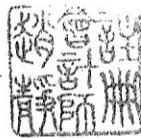 註冊
會計師
趙靜